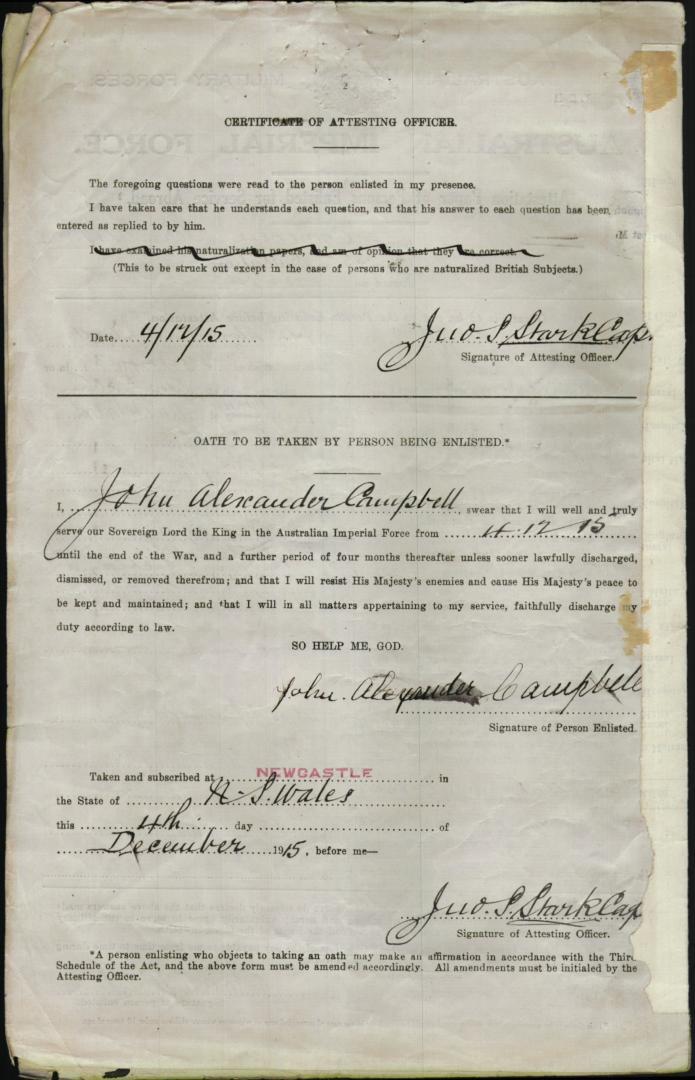 2
CERTIFICATE OF ATTESTING OFFICER.
The foregoing questions were read to the person enlisted in my presence.
I have taken care that he understands each question, and that his answer to each question has been
entered as replied to by him.
I have examined his naturalization papers, and am of opinion that they are correct.
(This to be struck out except in the case of persons who are naturalized British Subjects.)
Date....4/12/15......
Jno. S. Stark Cap.
Signature of Attesting Officer.
OATH TO BE TAKEN BY PERSON BEING ENLISTED.*
I, John Alexander Campbell, swear that I will well and truly
serve our Sovereign Lord the King in the Australian Imperial Force from 4.12.15
until the end of the War, and a further period of four months thereafter unless sooner lawfully discharged,
dismissed, or removed therefrom; and that I will resist His Majesty's enemies and cause His Majesty's peace to
be kept and maintained; and that I will in all matters appertaining to my service, faithfully discharge my
duty according to law.
SO HELP ME, GOD.
John Alexander Campbell
Signature of Person Enlisted.
Taken and subscribed at NEWCASTLE in
the State of N. S. Wales
this 4th day of
December 1915, before me—
Jno. S. Stark Cap
Signature of Attesting Officer.
*A person enlisting who objects to taking an oath may make an affirmation in accordance with the Third
Schedule of the Act, and the above form must be amended accordingly. All amendments must be initialed by the
Attesting Officer.